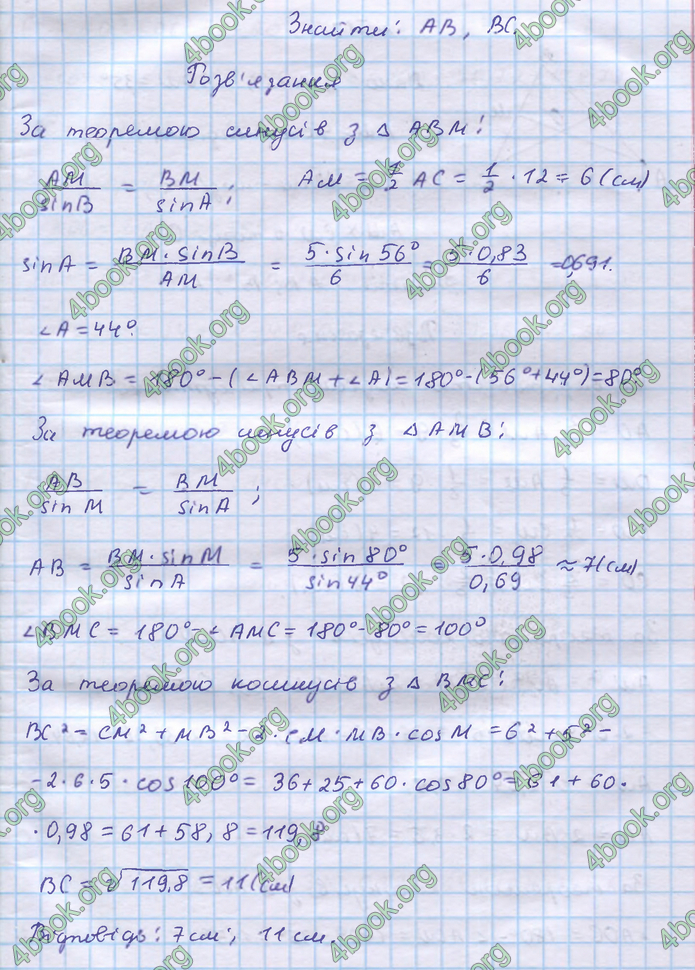 Знайти: AB, BC.
Розв'язання
За теоремою синусів з △ ABM:
AM/sinB = BM/sinA; AM = 1/2 AC = 1/2 · 12 = 6 (см)
sinA = BM·sinB/AM = 5·sin56°/6 = 5·0,83/6 = 0,691.
∠A = 44°.
∠AMB = 180° - (∠ABM + ∠A) = 180° - (56° + 44°) = 80°.
За теоремою синусів з △ AMB:
AB/sinM = BM/sinA;
AB = BM·sinM/sinA = 5·sin80°/sin44° = 5·0,98/0,69 ≈ 7 (см)
∠BMC = 180° - ∠AMC = 180° - 80° = 100°
За теоремою косинусів з △ BMC:
BC² = CM² + MB² - 2·CM·MB·cosM = 6² + 5² -
- 2·6·5·cos100° = 36 + 25 + 60·cos80° = 61 + 60·
·0,98 = 61 + 58,8 = 119,8
BC = √119,8 = 11 (см)
Відповідь: 7 см; 11 см.
4book.org